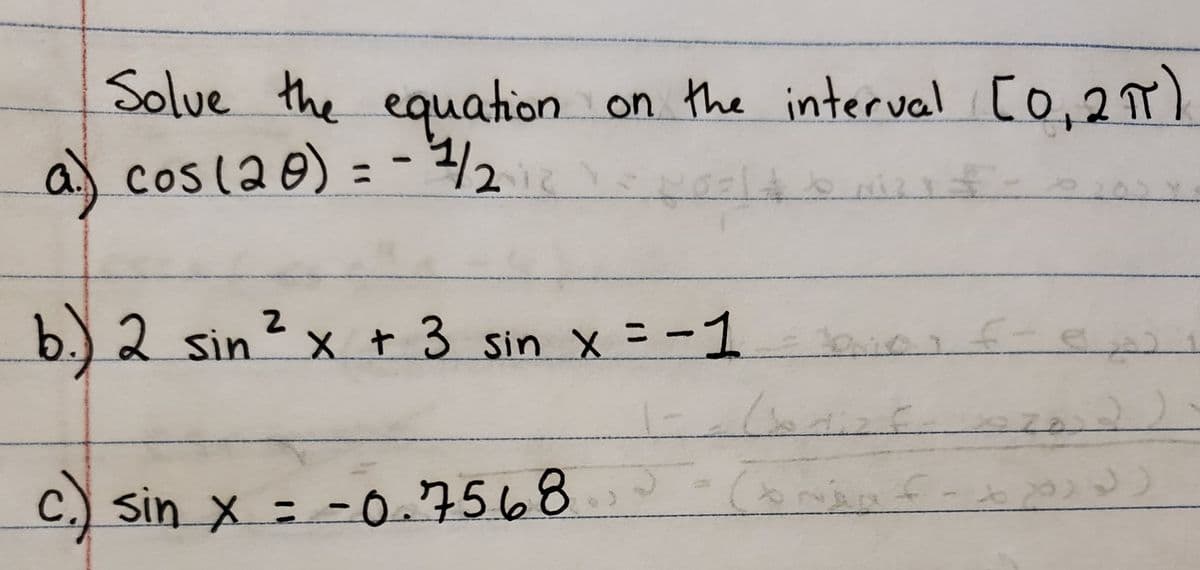 Solve the equation on the interval [0, 2π)
a.) cos(2θ) = - 1/2
b.) 2 sin² x + 3 sin x = -1
c.) sin x = -0.7568